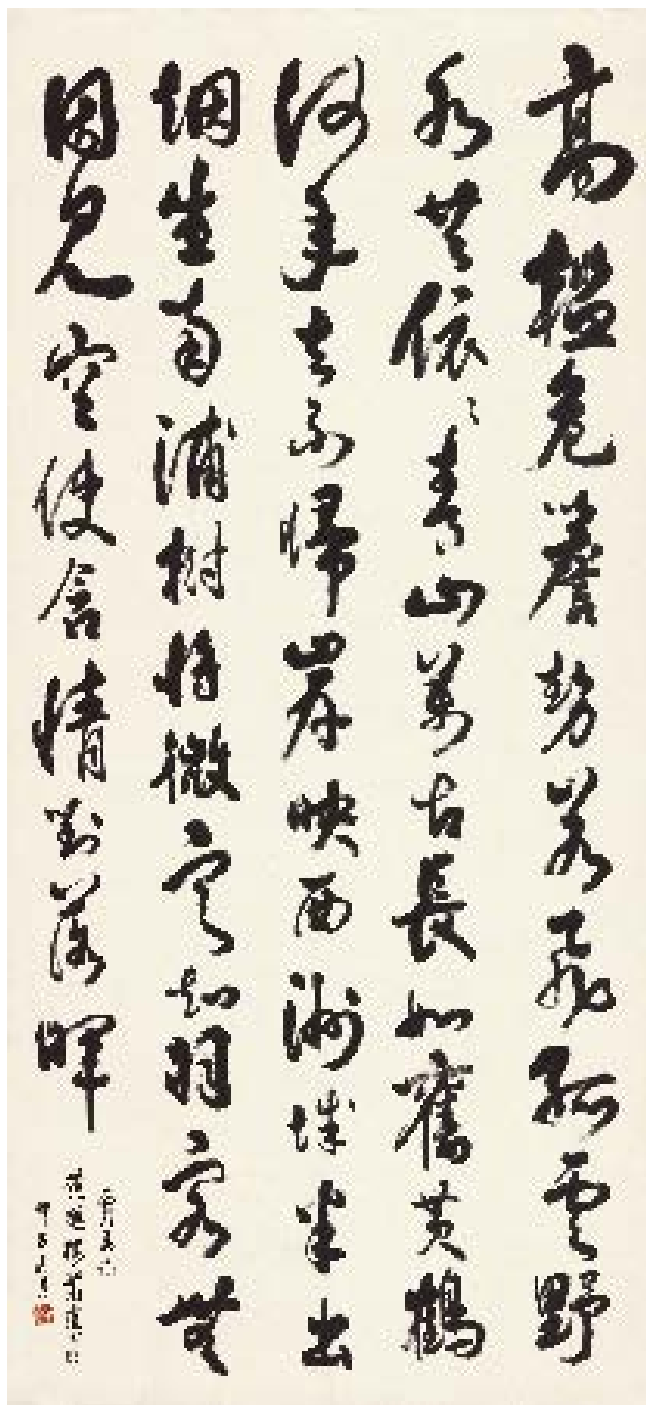 高檻危簷勢若飛孤雲野
水共依〻青山萬古長如舊黃鶴
何年去不歸岸映西洲城半出
烟生南浦樹將微定知羽客無
因見空使含情對落暉